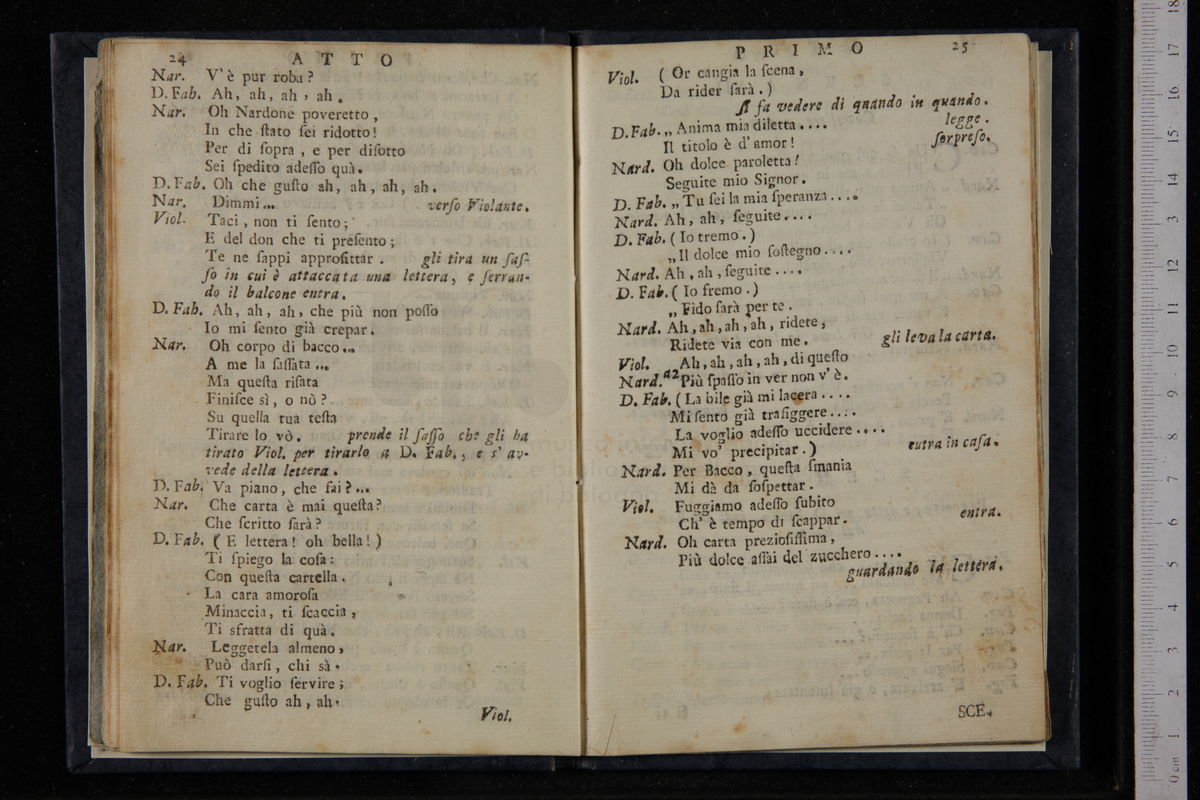 24 ATTO
Nar. V'è pur roba?
D. Fab. Ah, ah, ah, ah.
Nar. Oh Nardone poveretto,
In che ſtato ſei ridotto!
Per di ſopra, e per diſotto
Sei ſpedito adeſſo quà.
D. Fab. Oh che guſto ah, ah, ah, ah.
Nar. Dimmi... verſo Violante.
Viol. Taci, non ti ſento;
E del don che ti preſento;
Te ne ſappi approfittar. gli tira un ſaſ-
ſo in cui è attaccata una lettera, e ſerran-
do il balcone entra.
D. Fab. Ah, ah, ah, che più non poſſo
Io mi ſento già crepar.
Nar. Oh corpo di bacco...
A me la ſaſſata...
Ma queſta riſata
Finiſce sì, o nò?
Su quella tua teſta
Tirare lo vò. prende il ſaſſo che gli ha
tirato Viol. per tirarlo a D. Fab., e s'av-
vede della lettera.
D. Fab. Va piano, che fai?...
Nar. Che carta è mai queſta?
Che ſcritto ſarà?
D. Fab. (E lettera! oh bella!)
Ti ſpiego la coſa:
Con queſta cartella.
La cara amoroſa
Minaccia, ti ſcaccia,
Ti sfratta di quà.
Nar. Leggetela almeno,
Può darſi, chi sà.
D. Fab. Ti voglio ſervire;
Che guſto ah, ah.
Viol.
PRIMO 25
Viol. (Or cangia la ſcena,
Da rider ſarà.)
ſi fa vedere di quando in quando.
D. Fab. „Anima mia diletta.... legge.
Il titolo è d'amor! ſorpreſo.
Nard. Oh dolce paroletta!
Seguite mio Signor.
D. Fab. „Tu ſei la mia ſperanza....
Nard. Ah, ah, ſeguite....
D. Fab. (Io tremo.)
„Il dolce mio ſoſtegno....
Nard. Ah, ah, ſeguite....
D. Fab. (Io fremo.)
„Fido ſarà per te.
Nard. Ah, ah, ah, ah, ridete,
Ridete via con me. gli leva la carta.
Viol. Ah, ah, ah, ah, di queſto
Nard. a2 Più ſpaſſo in ver non v'è.
D. Fab. (La bile già mi lacera....
Mi ſento già trafiggere....
La voglio adeſſo uccidere....
Mi vo' precipitar.) entra in caſa.
Nard. Per Bacco, queſta ſmania
Mi dà da ſoſpettar.
Viol. Fuggiamo adeſſo ſubito
Ch'è tempo di ſcappar. entra.
Nard. Oh carta prezioſiſſima,
Più dolce aſſai del zucchero....
guardando la lettera.
SCE.